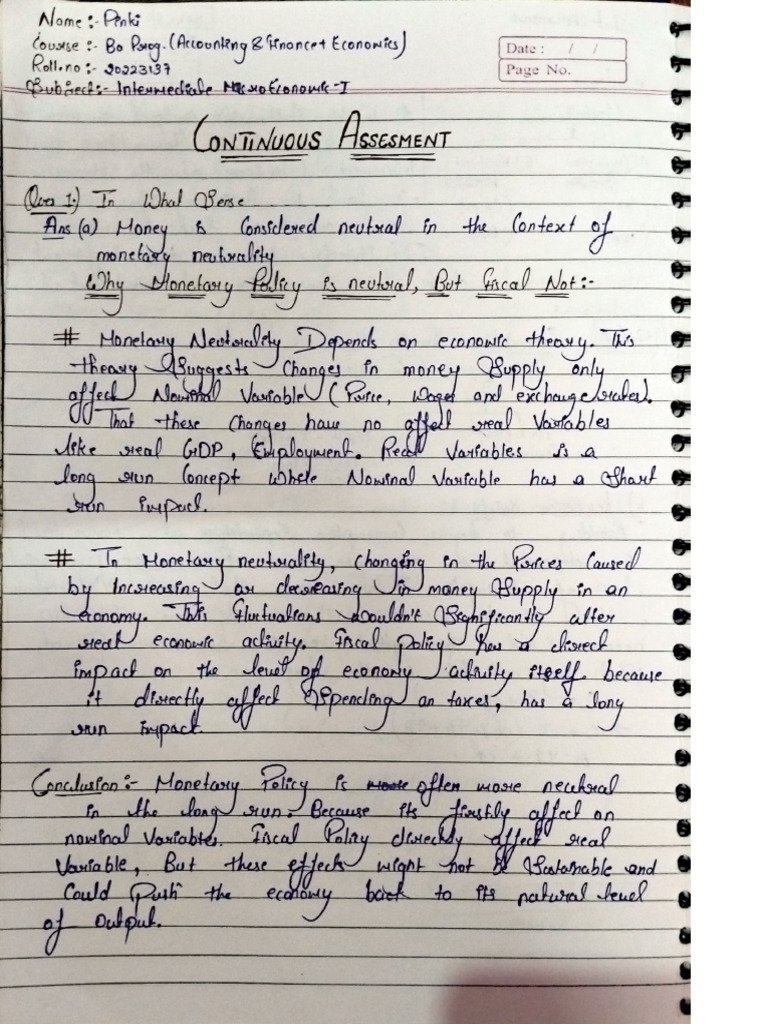 Name:- Pinki
Course:- Ba Prog. (Accounting & Finance + Economics)
Date : / /
Roll.no:- 20223137
Page No.
Subject:- Intermediate MacroEconomic-I
CONTINUOUS ASSESMENT
(Ques 1.) In What Sense ........
Ans (a) Money is Considered neutral in the Context of
monetary neutrality
Why Monetary Policy is neutral, But Fiscal Not:-
# Monetary Neutrality Depends on economic theory. This
theory Suggests Changes in money Supply only
affect Nominal Variable (Price, Wages and exchange rates).
That these Changes have no affect real Variables
like real GDP, Employment. Real Variables is a
long run Concept Where Nominal Variable has a Short
run impact.
# In Monetary neutrality, Changing in the Prices Caused
by Increasing or decreasing in money Supply in an
economy. This Fluctuations Wouldn't Significantly alter
real economic activity. Fiscal policy has a direct
impact on the level of economy activity itself because
it directly affect Spending on taxes, has a long
run impact.
Conclusion:- Monetary Policy is more often more neutral
in the long run. Because its firstly affect on
nominal Variables. Fiscal Policy directly affect real
Variable, But these effects might not be Sustainable and
Could Push the economy back to its natural level
of output.